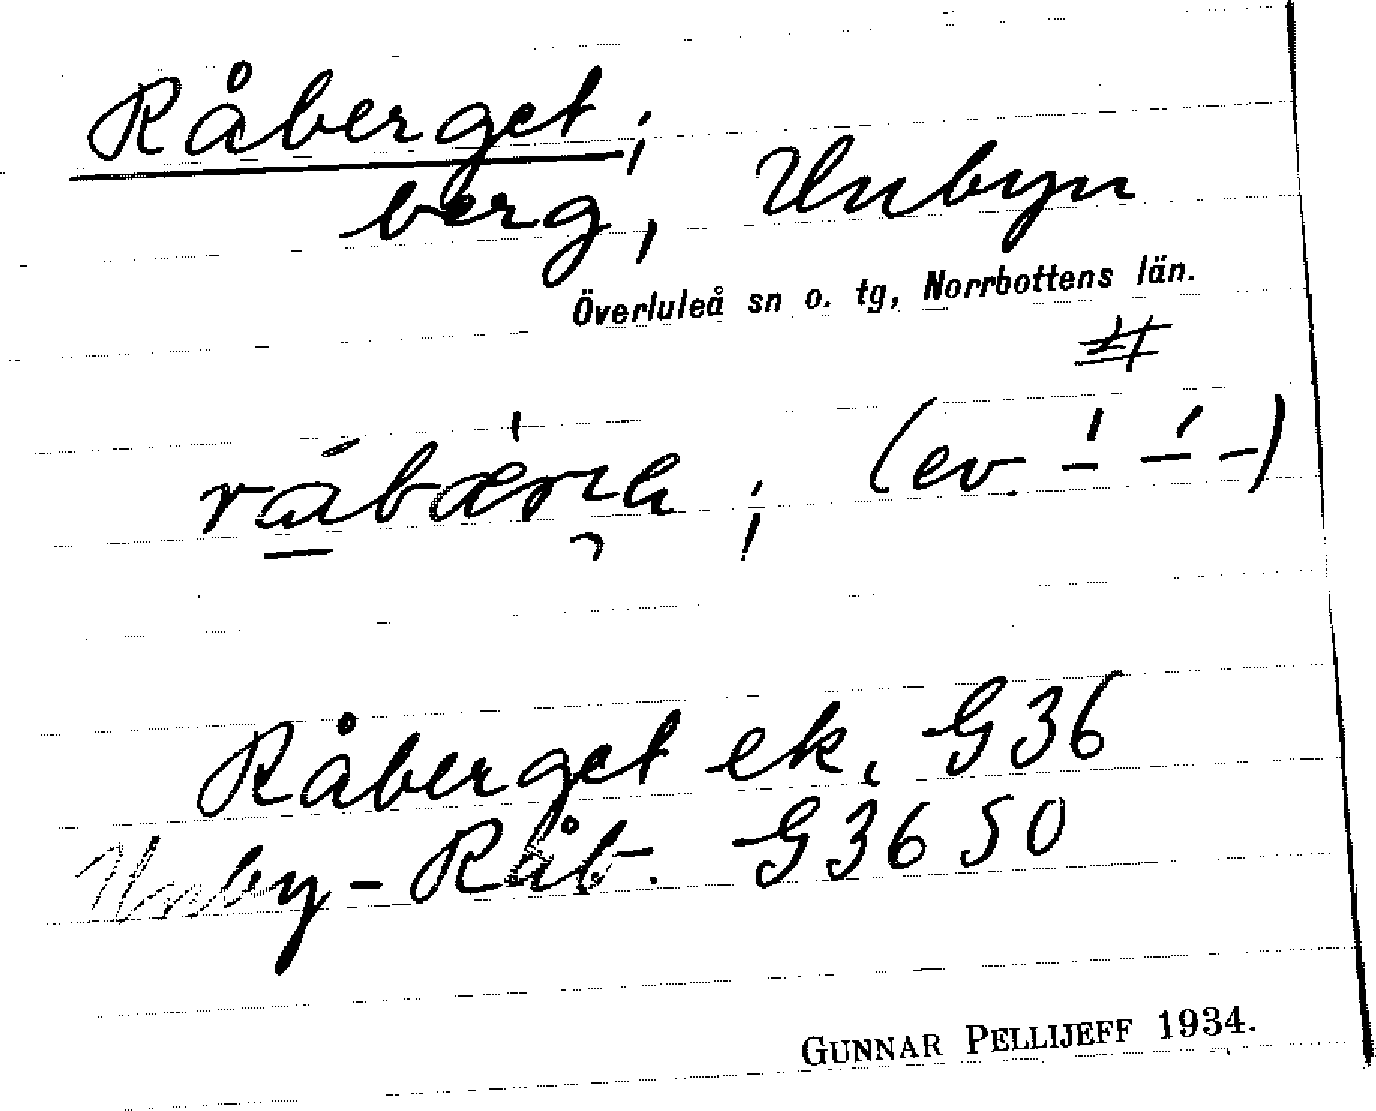 Råberget;
berg, Unbyn
Överluleå sn o. tg, Norrbottens län.
(ev. – – –)
Råberget ek. G36
Unby-Råb. G36 50
GUNNAR PELLIJEFF 1934.